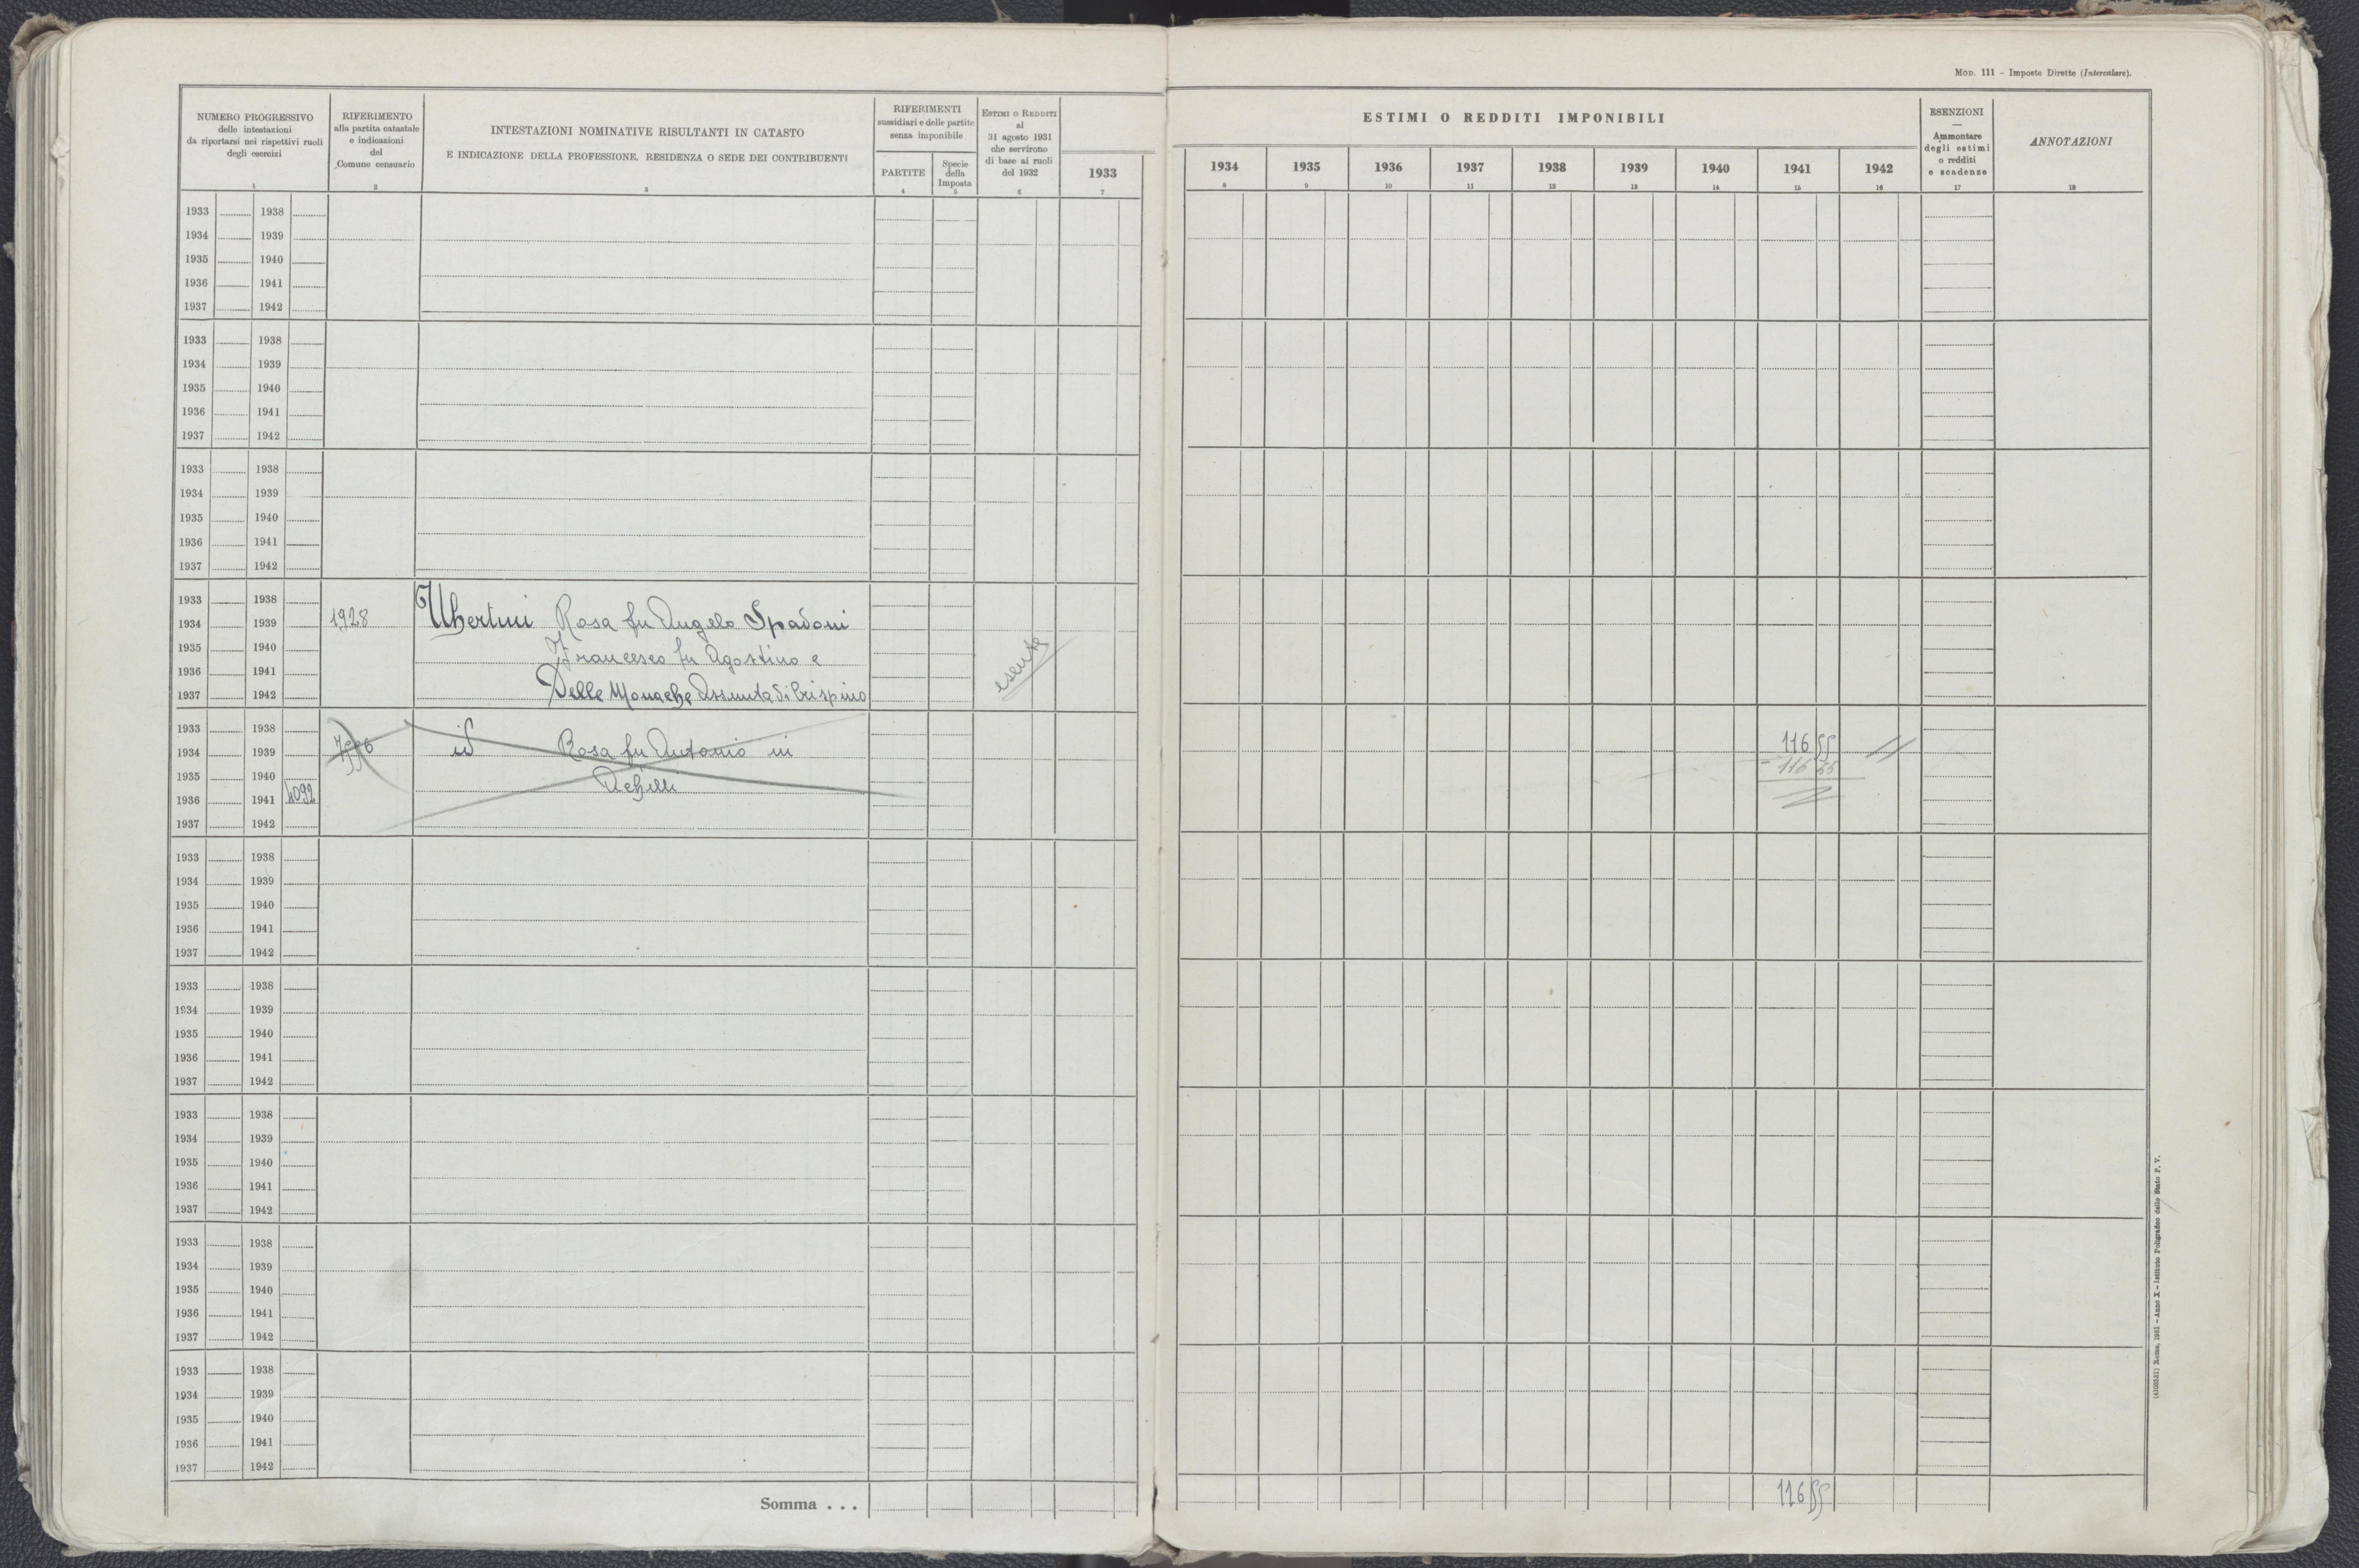 MOD. 111 - Imposte Dirette (Intercalare).
NUMERO PROGRESSIVO
delle intestazioni
da riportarsi nei rispettivi ruoli
degli esercizi
1
RIFERIMENTO
alla partita catastale
e indicazioni
del
Comune censuario
2
INTESTAZIONI NOMINATIVE RISULTANTI IN CATASTO
E INDICAZIONE DELLA PROFESSIONE, RESIDENZA O SEDE DEI CONTRIBUENTI
3
RIFERIMENTI
sussidiari e delle partite
senza imponibile
PARTITE
4
Specie
della
Imposta
5
ESTIMI O REDDITI
al
31 agosto 1931
che servirono
di base ai ruoli
del 1932
6
1933
7
ESTIMI O REDDITI IMPONIBILI
1934 1935 1936 1937 1938 1939 1940 1941 1942
8 9 10 11 12 13 14 15 16
ESENZIONI
—
Ammontare
degli estimi
o redditi
e scadenze
17
ANNOTAZIONI
18
1933 1938
1934 1939
1935 1940
1936 1941
1937 1942
1933 1938
1934 1939
1935 1940
1936 1941
1937 1942
1933 1938
1934 1939
1935 1940
1936 1941
1937 1942
1933 1938
1934 1939 1928 Ubertini Rosa fu Angelo Spadoni
1935 1940 Francesco fu Agostino e esente
1936 1941
1937 1942 Delle Monache Assunta di Crispino
1933 1938
1934 1939 id Rosa fu Antonio in 116 55
1935 1940 - 116 55
1936 1941 4092 Achilli
1937 1942
1933 1938
1934 1939
1935 1940
1936 1941
1937 1942
1933 1938
1934 1939
1935 1940
1936 1941
1937 1942
1933 1938
1934 1939
1935 1940
1936 1941
1937 1942
1933 1938
1934 1939
1935 1940
1936 1941
1937 1942
1933 1938
1934 1939
1935 1940
1936 1941
1937 1942
Somma . . . 116 55
(4103531) Roma, 1931 - Anno X - Istituto Poligrafico dello Stato P. V.